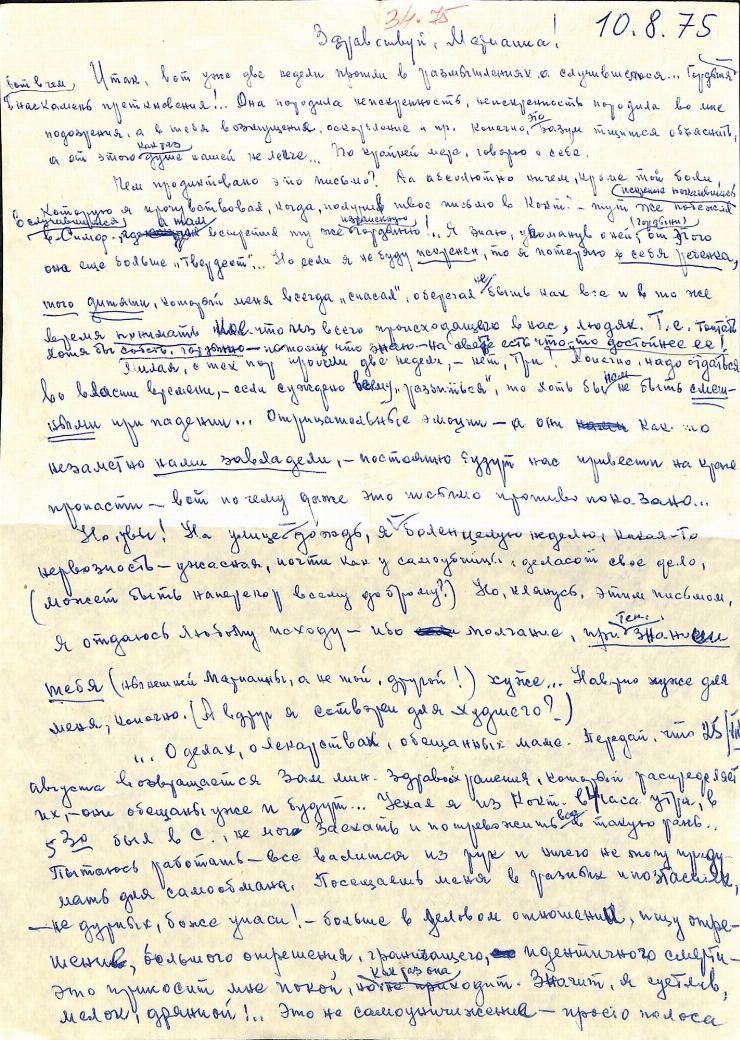 34.75
10.8.75
Здравствуй, Марианна!
вот в чем Итак, вот уже две недели прошли в размышлениях о случившемся... Гордыня
в нас камень преткновения!.. Она породила неискренность, неискренность породила во мне
подозрения, а в тебя возмущения, оскорбление и пр. Конечно, это разум тщится объяснить,
а от этого как раз душе нашей не легче... По крайней мере, говорю о себе.
Чем продиктовано это письмо? Да абсолютно ничем, кроме той боли,
которую я прочувствовал, когда, получив твое письмо в Кокт. – тут же поехал
в Симфер. а там встретил ту же гордыню!.. Я знаю, упомянув о ней, (гордыни) от этого
она еще больше "твердеет"... Но если я не буду искренен, то я потеряю в себе ребенка,
того дитяти, который меня всегда "спасал", оберегал не быть как все и в то же
время понимать кое-что из всего происходящего в нас, людях. Т.е.
хотя бы собств. – потому что знаю – на свете есть что-то достойнее ее!
Милая, с тех пор прошли две недели, – нет, три! Конечно, надо отдаться
во власти времени, – если суждено всему "разбиться", то хоть бы нам не быть смеш-
ными при падении... Отрицательные эмоции – а они как-то
незаметно нами завладели, – постоянно будут нас привести на краю
пропасти – вот почему даже это письмо противопоказано...
Но, увы! На улице – дождь, я болен целую неделю, какая-то
нервозность – ужасная, почти как у самоубийцы, делают свое дело,
(может быть наперекор всему доброму?) Но, клянусь, этим письмом,
я отдаюсь любому исходу – ибо молчание, при знании
тебя (нынешней Марианны, а не той, другой!) хуже... Наверно хуже для
меня, конечно. (А вдруг я сотворен для худшего?)
... О делах, о лекарствах, обещанных маме. Передай, что 25
августа возвращается Зам. мин. Здравоохранения, который распределяет
их, – они обещаны уже и будут... Уехал я из Кокт. в 4 часа утра, в
5 30 был в С., не мог заехать и потревожить вас в такую рань..
Пытаюсь работать – все валится из рук и ничего не могу приду-
мать для самообмана. Посещаешь меня в разных ипостасях,
– не дурных, боже упаси! – больше в деловом отношении, ищу отре-
шение, большого отрешения, граничащего, идентичного смерти –
это приносит мне покой, как раз она приходит. Значит, я суетлив,
мелок, дрянной!.. Это не самоуничижение – просто полоса